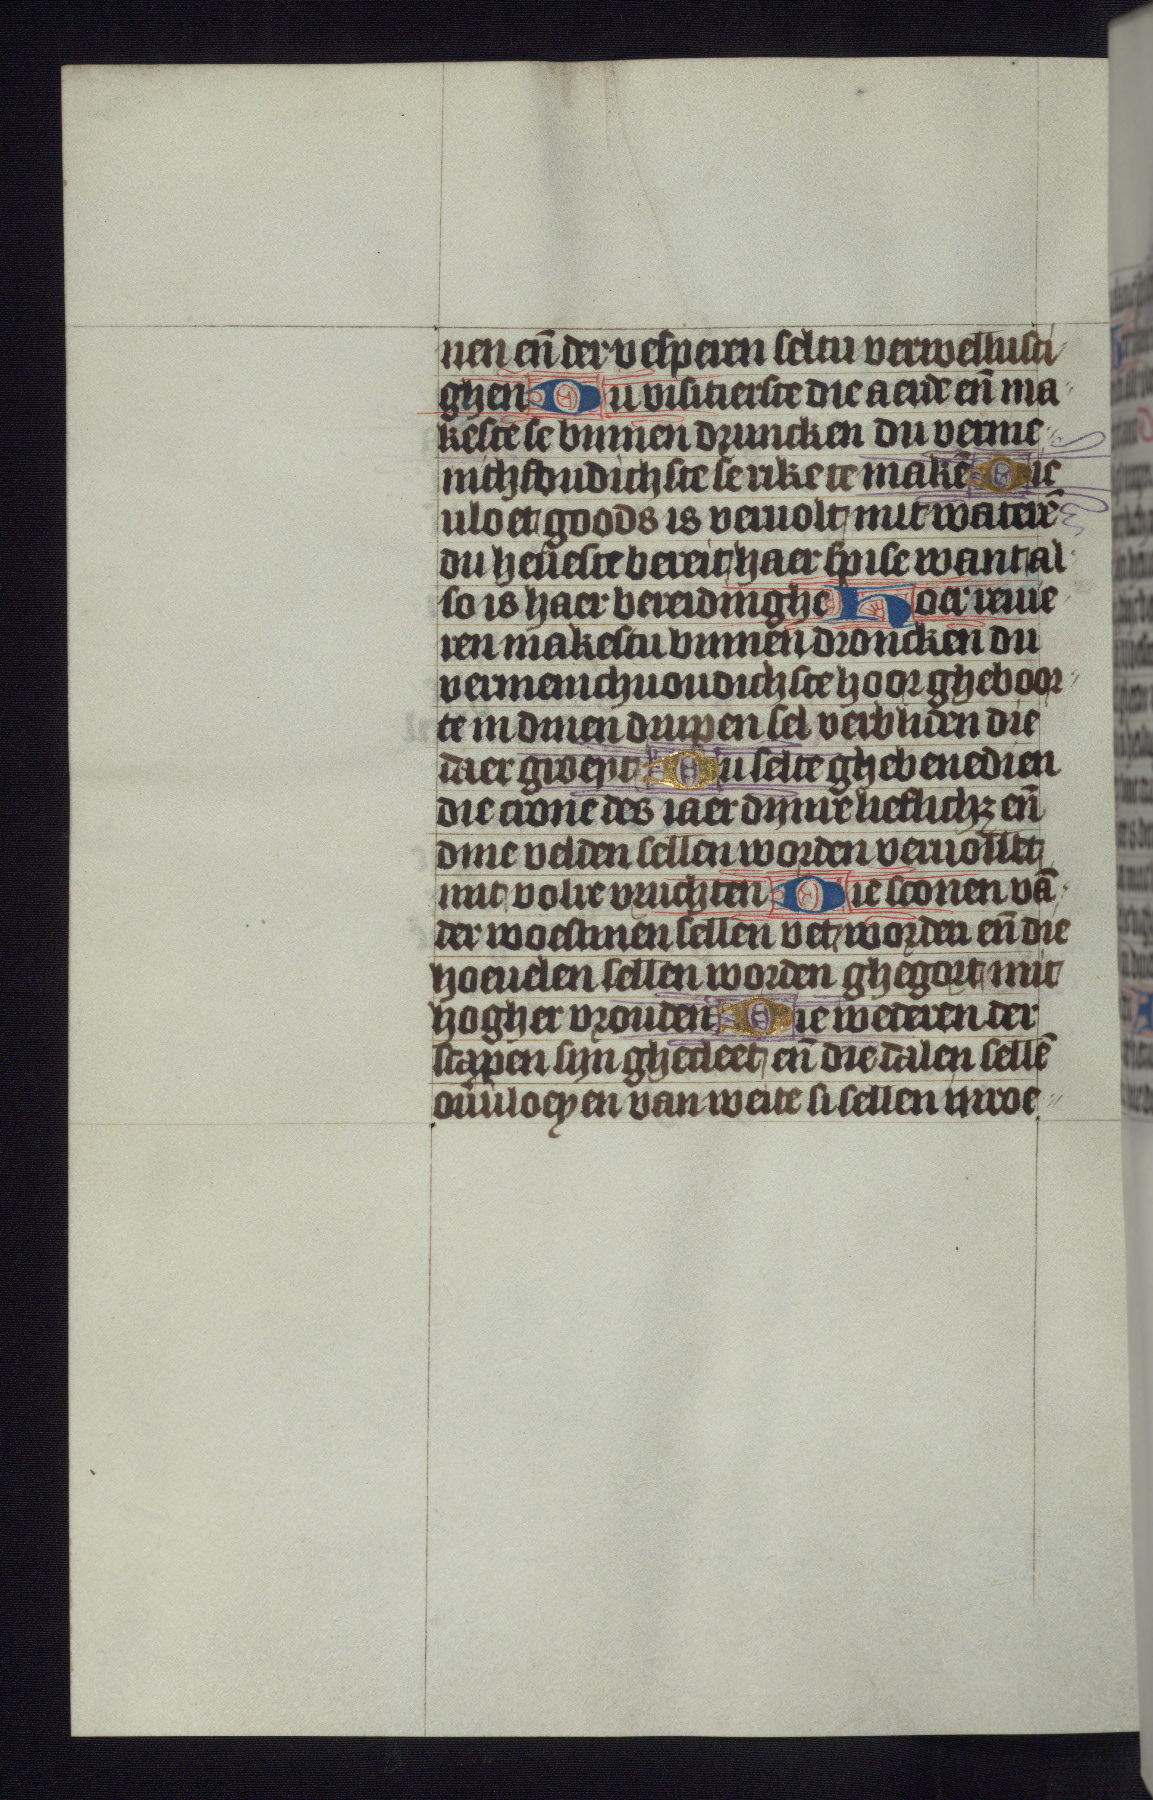 nen en̄ der vesperen seltu verwellusti
ghen Du visitierste die aerde en̄ ma
keste se binnen druncken du verme
nichfoudichste se rike te makē Die
vloet goods is veruolt mit waterē
du heueste bereit haer spise want al
so is haer bereidinghe Hoer reuie
ren makestu binnen droncken du
vermenichuoudichste hoor gheboor
te in dinen drupen sel verbliden die
daer groeyt Du selte ghebenedien
die crone des iaer dijnre lieflichz en̄
dine velden sellen worden veruollet
mit volre vruchten Die sconen vā
der woestinen sellen vet worden en̄ die
hoeuelen sellen worden ghegort mit
hogher vrouden Die wederen der
scapen sijn ghecleet en̄ die dalen sellē
ou̅vloeyen van weite si sellen inroe